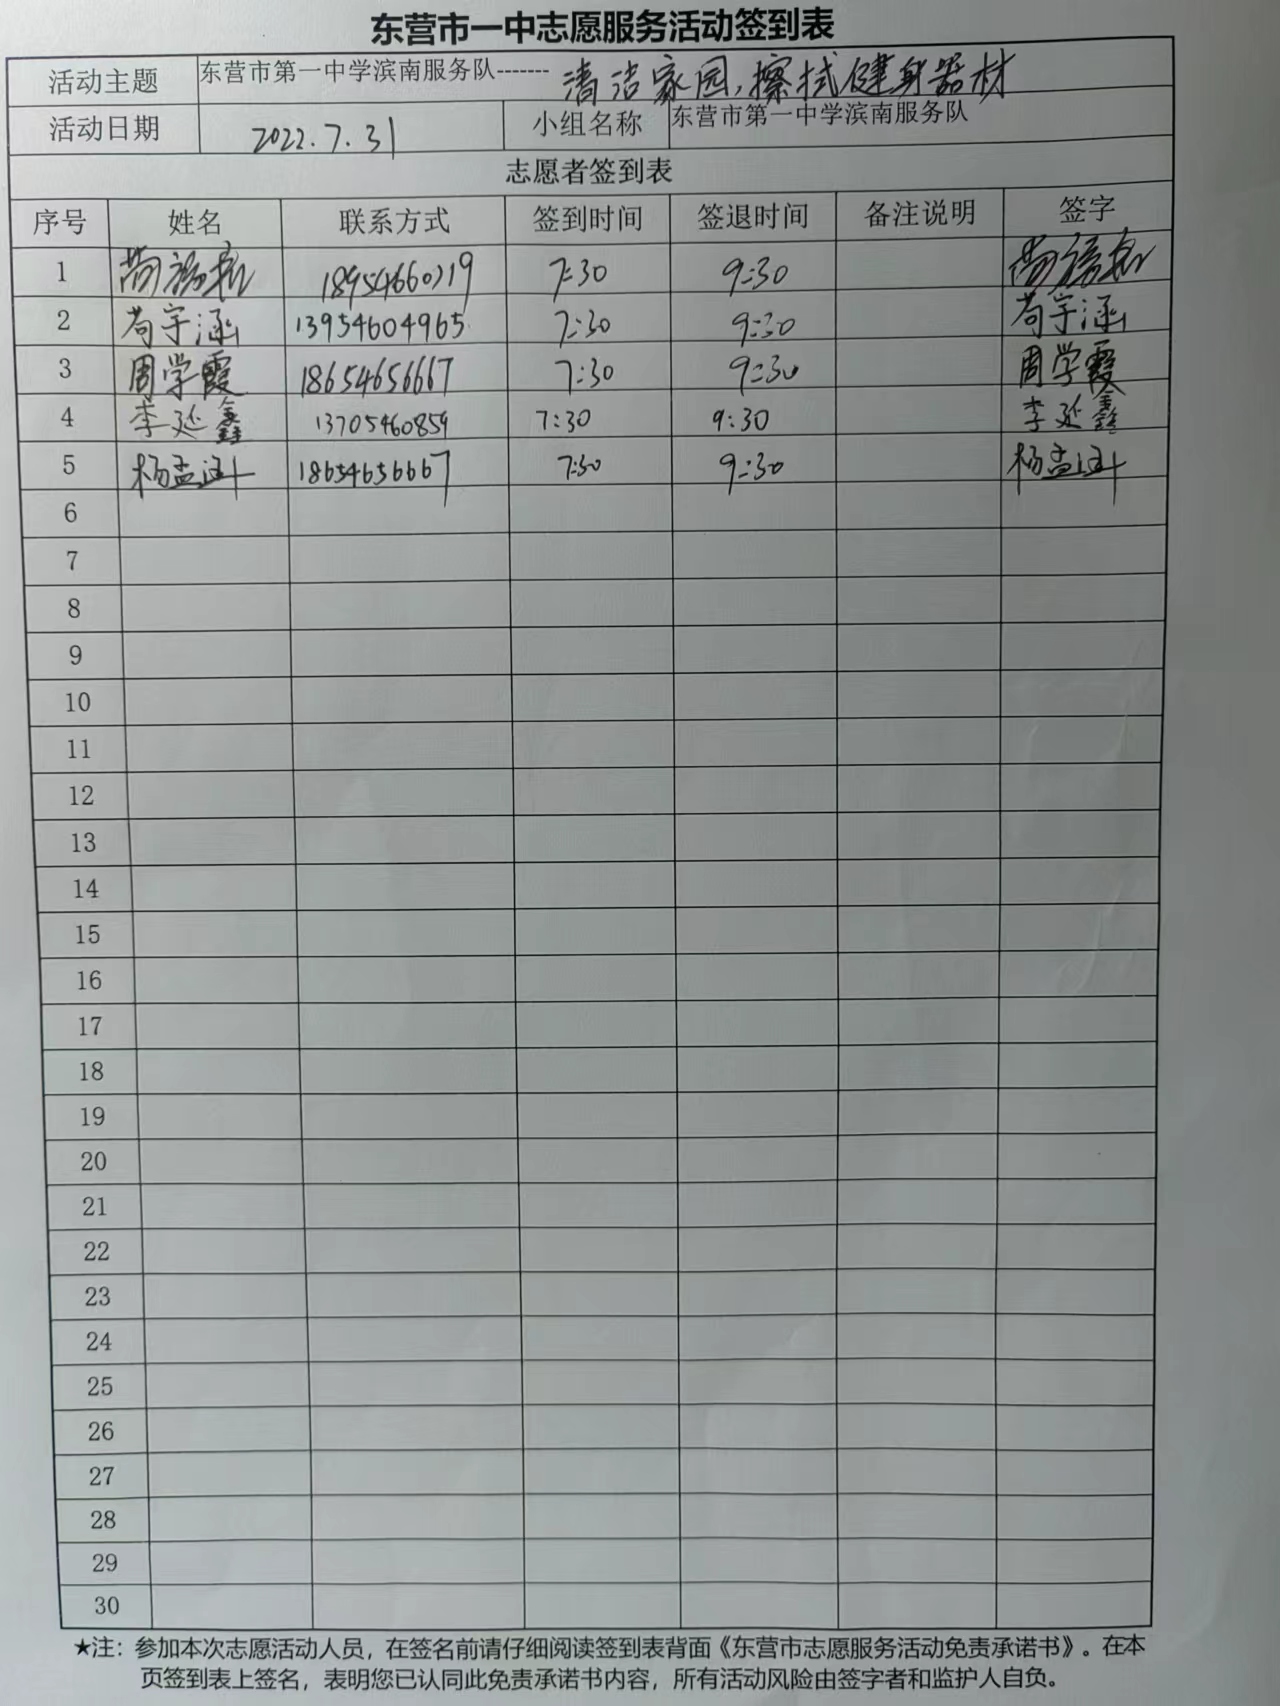 东营市一中志愿服务活动签到表
活动主题 东营市第一中学滨南服务队------- 清洁家园,擦拭健身器材
活动日期 2022.7.31 小组名称 东营市第一中学滨南服务队
志愿者签到表
序号 姓名 联系方式 签到时间 签退时间 备注说明 签字
1 7:30 9:30
2 苟宇涵 13954604965 7:30 9:30 苟宇涵
3 周学霞 18654656667 7:30 9:30 周学霞
4 李延鑫 13705460859 7:30 9:30 李延鑫
5 杨孟 18654656667 7:30 9:30 杨孟
6
7
8
9
10
11
12
13
14
15
16
17
18
19
20
21
22
23
24
25
26
27
28
29
30
★注：参加本次志愿活动人员，在签名前请仔细阅读签到表背面《东营市志愿服务活动免责承诺书》。在本
页签到表上签名，表明您已认同此免责承诺书内容，所有活动风险由签字者和监护人自负。